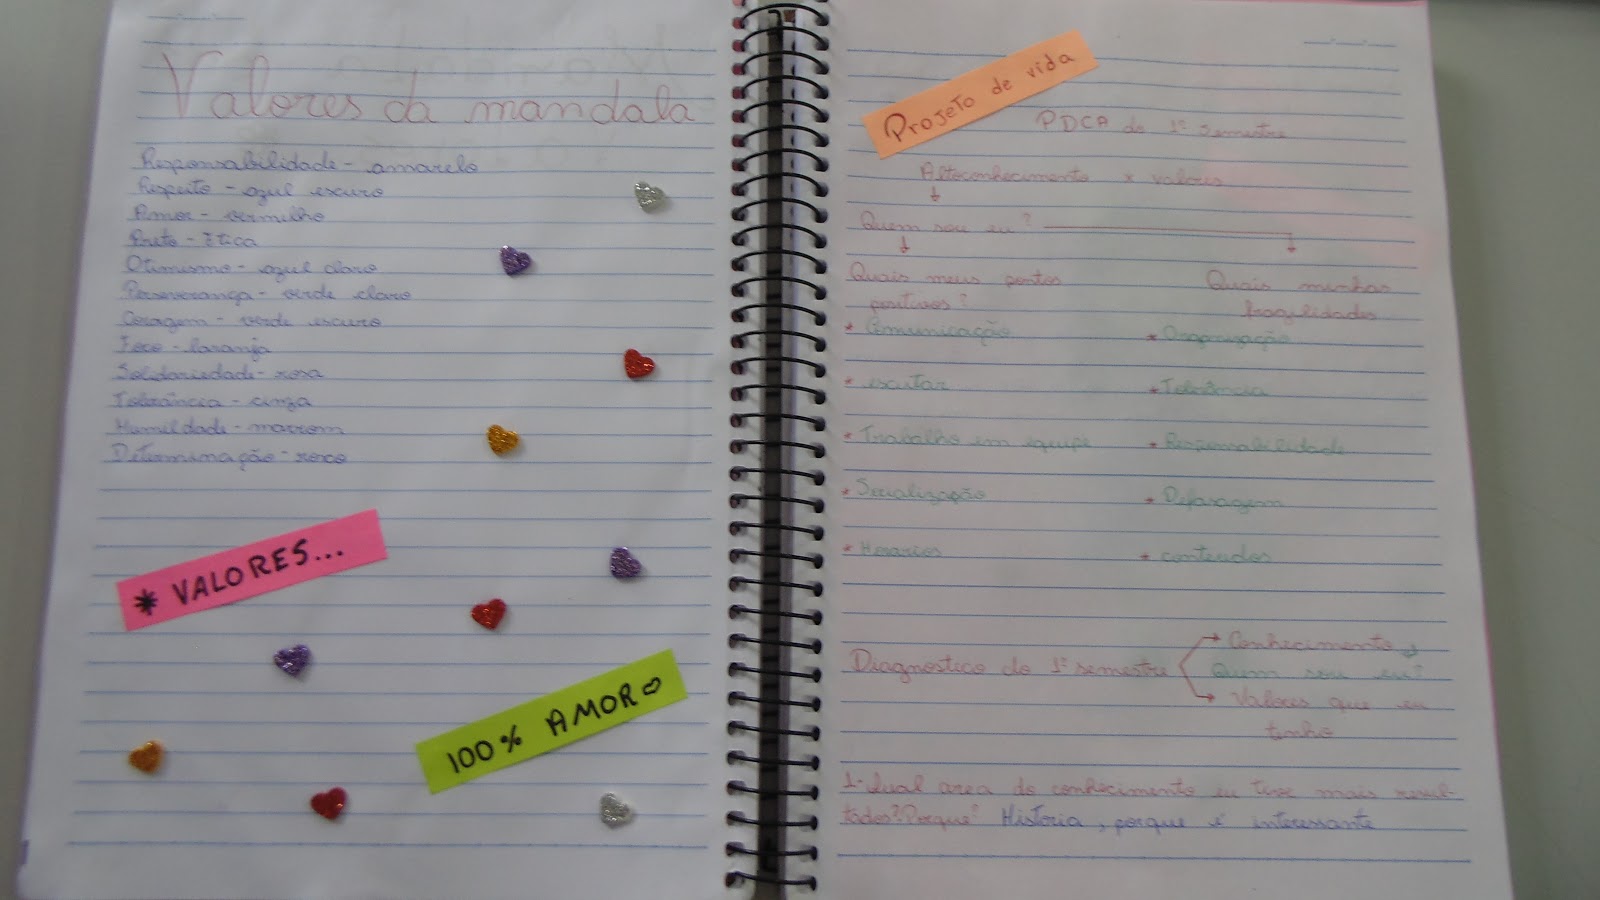 Valores da mandala
Responsabilidade - amarelo
Respeito - azul escuro
Amor - vermelho
Preto - Ética
Otimismo - azul claro
Perseverança - verde claro
Coragem - verde escuro
Foco - laranja
Solidariedade - rosa
Tolerância - cinza
Humildade - marrom
Determinação - roxo
* VALORES...
100% AMOR
Projeto de vida
PDCA do 1º semestre
Altoconhecimento x valores
Quem sou eu?
Quais meus pontos
positivos?
* Comunicação
* escutar
* Trabalho em equipe
* Socialização
* Horários
Quais minhas
fragilidades
* Organização
* Tolerância
* Responsabilidade
* Defasagem
* conteúdos
Diagnostico do 1º semestre
Conhecimento
Quem sou eu?
Valores que eu
tenho
1- Qual area do conhecimento eu tive mais resul-
tados? Porque? Historia, porque é interessante